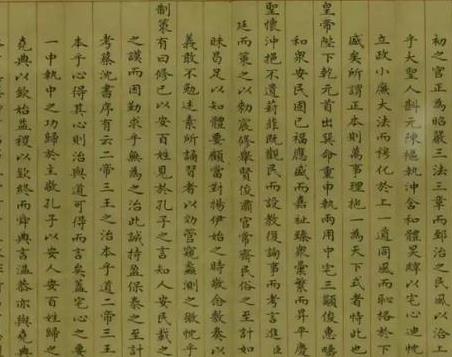 初之官正為昭嚴三法三章而郅治之民風以洽工
乎大聖人斟元陳樞執沖含和體昊緯以宅心迪忱
立政小廉大法而化於上一道同風而恥格於下
盛矣所謂正本則萬事理抱一為天下式者恃此也
皇帝陛下乾元首出巽命重申執兩用中宅三顯俊惠疇
和眾安民固已福應盛而嘉祉臻眾彙繁而昇平慶
聖懷沖挹不遺葑菲既觀民而設教復詢事而考言進臣
廷而策之以勑宸修舉賢俊肅官常齊民俗之至計如
昧曷足以知體要顧當對揚伊始之時敬念敷奏以
義敢不勉述素所誦習者以効管窺蠡測之微忱乎
制策有曰修己以安百姓見於孔子之言知人安民載之
之謨而因勤求乎無為之治此誠持盈保泰之至計
考蔡沈書序有云二帝三王之治本乎道二帝三王
本乎心得其心則治與道可得而言矣蓋宅心之要
一中執中之功歸於主敬孔子以安人安百姓歸之
堯典以欽始益稷以欽終而舜典言溫恭亦與堯典